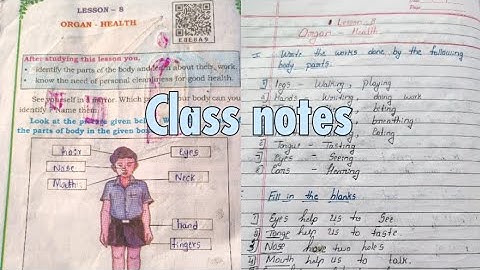 LESSON - 8
ORGAN - HEALTH
E8E8A9
After studying this lesson you,
• identify the parts of the body and about their work.
• know the need of personal cleanliness for good health.
See yourself in mirror. Which of your body can you
identify? Name them.
Look at the picture given
the parts of body in the given
hair
Eyes
Nose
Mouth
Neck
hand
fingers
Class notes
Lesson - 8
Organ - Health
I Write the works done by the following
body parts.
1) legs - Walking, playing
2) Hands - Writing, doing work
eating
breathing
Eating
6) Tongue - Tasting
7) Eyes - Seeing
8) Ears - Hearing
Fill in the blanks
1) Eyes help us to See.
2) Tonge help us to taste.
3) Nose have two holes
4) Mouth help us to talk.